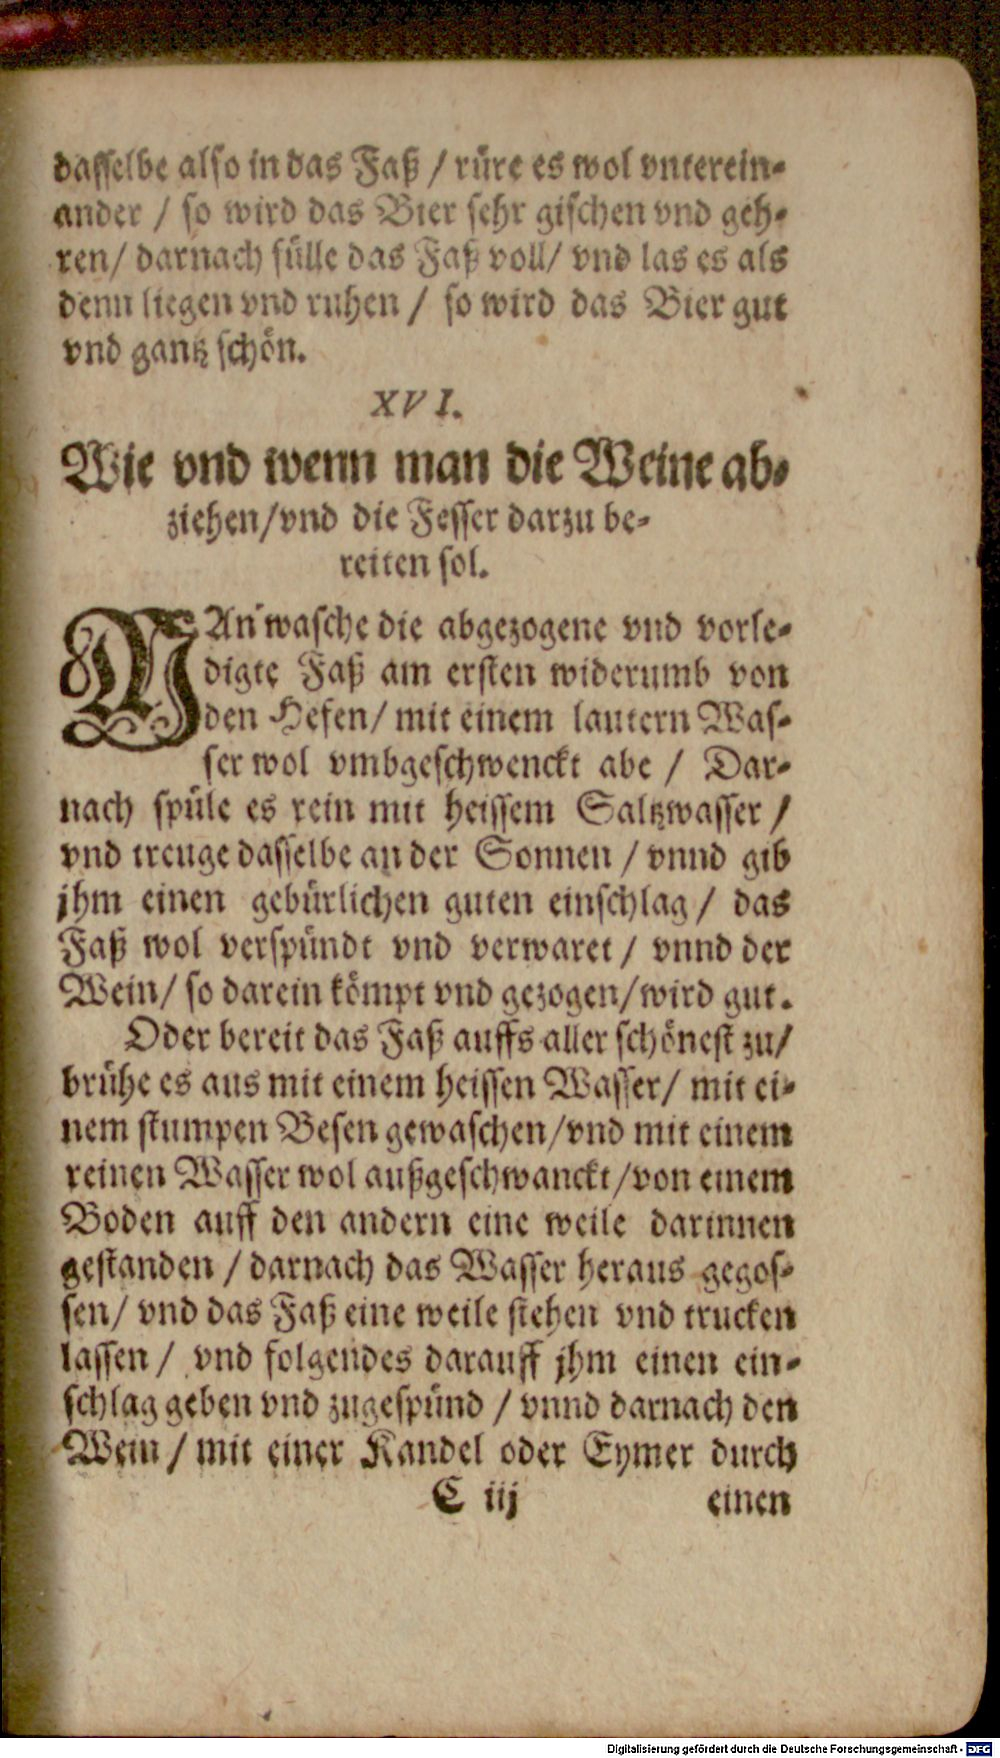 dasselbe also in das Faß / rüre es wol vnterein-
ander / so wird das Bier sehr gischen vnd geh-
ren/ darnach fülle das Faß voll/ vnd las es als
denn liegen vnd ruhen / so wird das Bier gut
vnd gantz schön.
XVI.
Wie vnd wenn man die Weine ab-
ziehen/vnd die Fesser darzu be-
reiten sol.
MAn wasche die abgezogene vnd vorle-
digte Faß am ersten widerumb von
den Hefen/ mit einem lautern Was-
ser wol vmbgeschwenckt abe / Dar-
nach spüle es rein mit heissem Saltzwasser /
vnd treuge dasselbe an der Sonnen / vnnd gib
jhm einen gebürlichen guten einschlag / das
Faß wol verspündt vnd verwaret / vnnd der
Wein/ so darein kömpt vnd gezogen/wird gut.
Oder bereit das Faß auffs aller schönest zu/
brühe es aus mit einem heissen Wasser/ mit ei-
nem stumpen Besen gewaschen/vnd mit einem
reinen Wasser wol außgeschwanckt/von einem
Boden auff den andern eine weile darinnen
gestanden / darnach das Wasser heraus gegos-
sen/ vnd das Faß eine weile stehen vnd trucken
lassen / vnd folgendes darauff jhm einen ein-
schlag geben vnd zugespünd / vnnd darnach den
Wein / mit einer Kandel oder Eymer durch
C iij einen
Digitalisierung gefördert durch die Deutsche Forschungsgemeinschaft - DFG